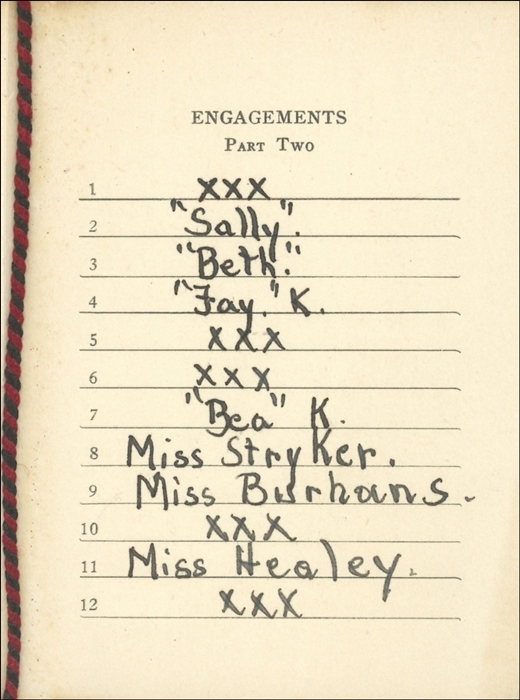 ENGAGEMENTS
Part Two
1 XXX
2 "Sally".
3 "Beth."
4 "Fay." K.
5 XXX
6 XXX
7 "Bea" K.
8 Miss Stryker.
9 Miss Burhans.
10 XXX
11 Miss Healey.
12 XXX